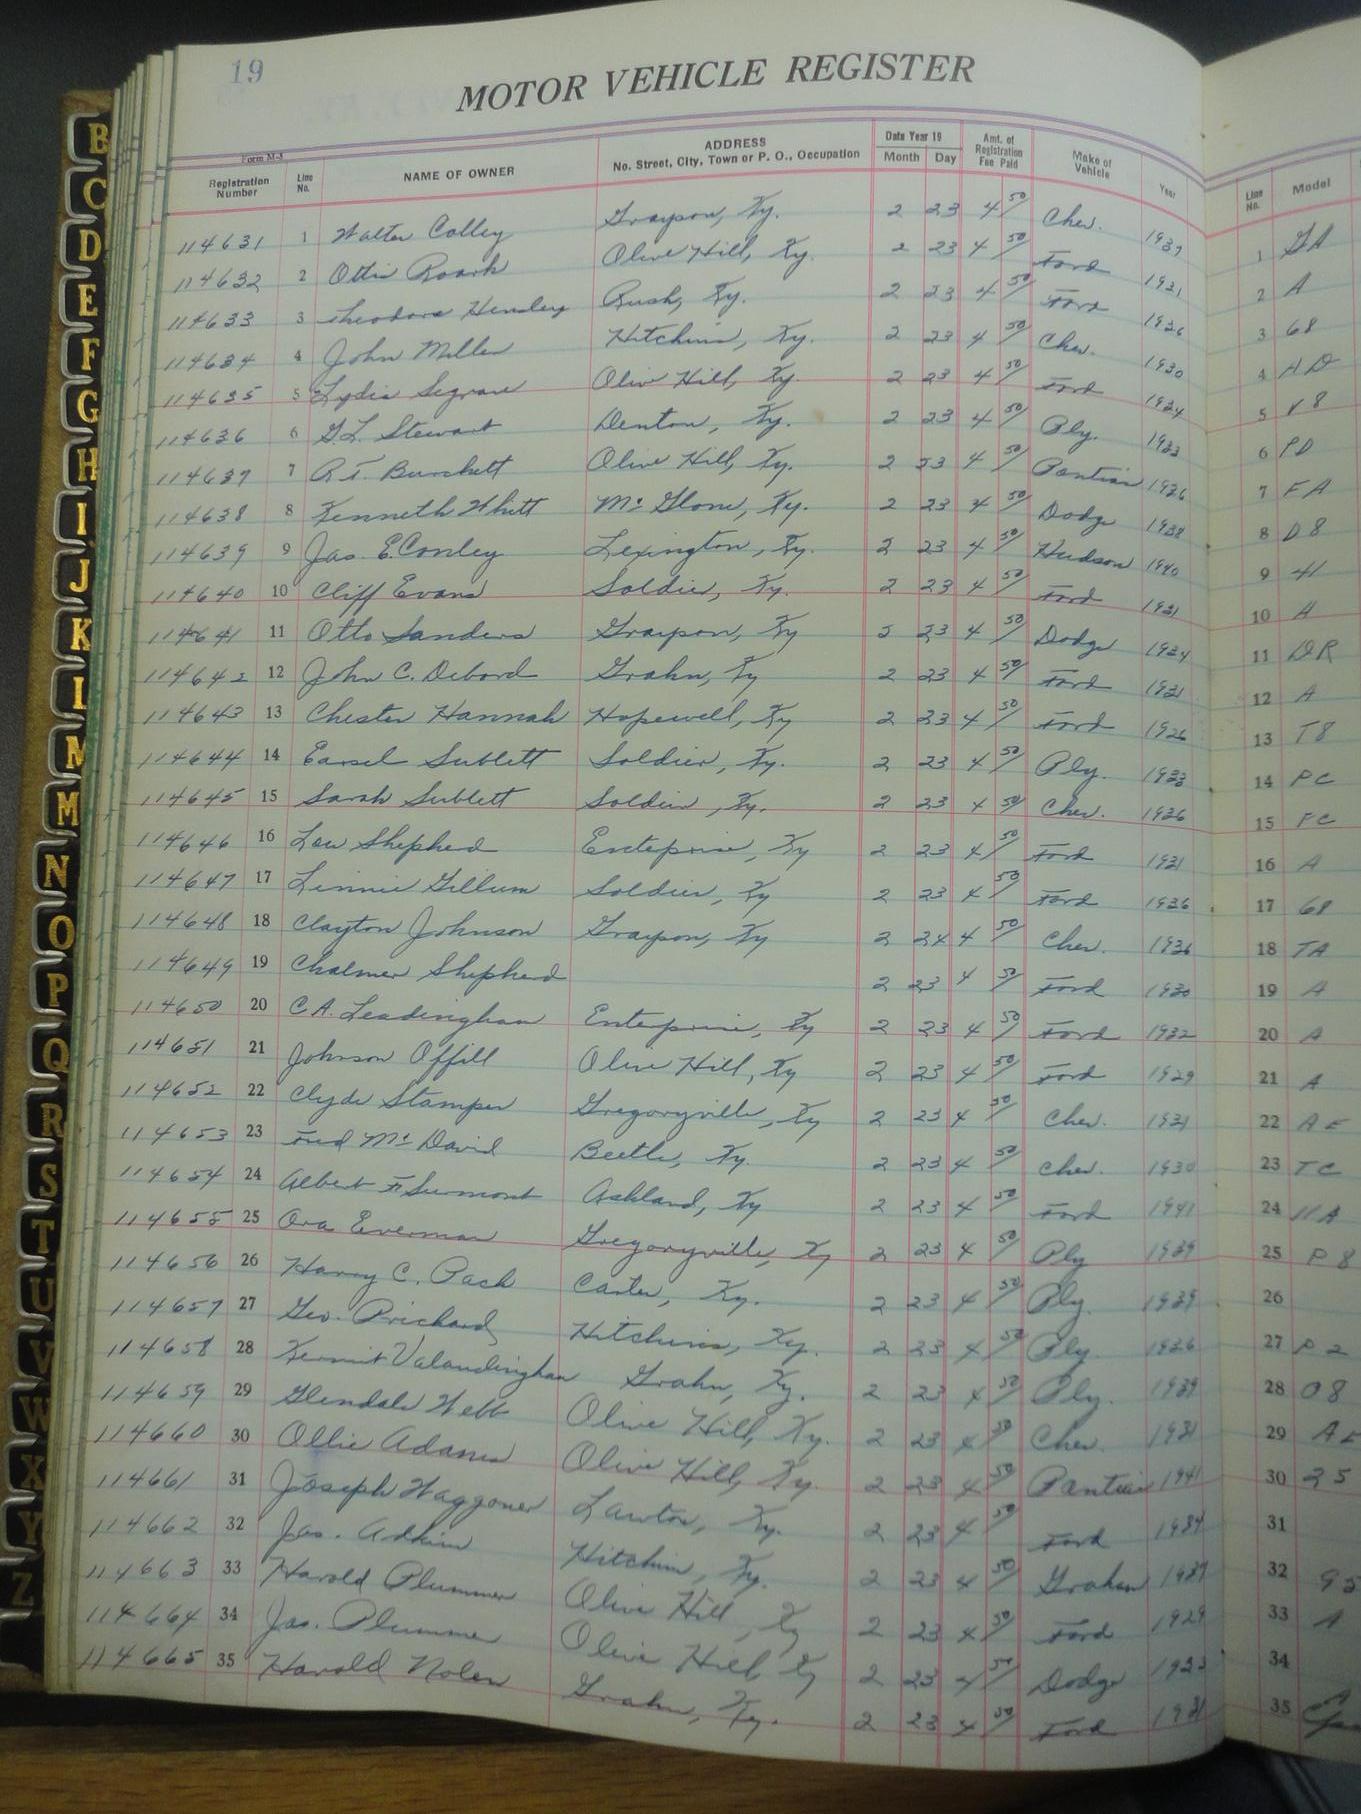 19
MOTOR VEHICLE REGISTER
Form M-3
Registration Number Line No. NAME OF OWNER ADDRESS No. Street, City, Town or P. O., Occupation Date Year 19 Month Day Amt. of Registration Fee Paid Make of Vehicle Year Line No. Model
114631 1 Walter Colley Grayson, Ky. 2 23 4 50 Chev. 1937 1 GA
114632 2 Ottis Roark Olive Hill, Ky. 2 23 4 50 Ford 1931 2 A
114633 3 Theodore Hensley Rush, Ky. 2 23 4 50 Ford 1936 3 68
114634 4 John Miller Hitchins, Ky. 2 23 4 50 Chev. 1930 4 AD
114635 5 Lydia Segrave Olive Hill, Ky. 2 23 4 50 Ford 1934 5 V8
114636 6 G.L. Stewart Denton, Ky. 2 23 4 50 Ply. 1933 6 PD
114637 7 R.T. Burchett Olive Hill, Ky. 2 23 4 50 Pontiac 1926 7 FA
114638 8 Kenneth Whitt Mc Glone, Ky. 2 23 4 50 Dodge 1938 8 D8
114639 9 Jas. E. Conley Lexington, Ky. 2 23 4 50 Hudson 1940 9 41
114640 10 Cliff Evans Soldier, Ky. 2 23 4 50 Ford 1931 10 A
114641 11 Otto Sanders Grayson, Ky 2 23 4 50 Dodge 1934 11 DR
114642 12 John C. Debord Grahn, Ky 2 23 4 50 Ford 1931 12 A
114643 13 Chester Hannah Hopewell, Ky 2 23 4 50 Ford 1926 13 T8
114644 14 Earsel Sublett Soldier, Ky. 2 23 4 50 Ply. 1933 14 PC
114645 15 Sarah Sublett Soldier, Ky. 2 23 4 50 Chev. 1936 15 FC
114646 16 Law Shepherd Enterprise, Ky 2 23 4 50 Ford 1931 16 A
114647 17 Linnie Gillum Soldier, Ky 2 23 4 50 Ford 1936 17 68
114648 18 Clayton Johnson Grayson, Ky 2 24 4 50 Chev. 1936 18 TA
114649 19 Chalmer Shepherd 2 23 4 50 Ford 1930 19 A
114650 20 C.A. Leadingham Enterprise, Ky 2 23 4 50 Ford 1932 20 A
114651 21 Johnson Offill Olive Hill, Ky 2 23 4 50 Ford 1929 21 A
114652 22 Clyde Stamper Gregoryville, Ky 2 23 4 50 Chev. 1931 22 AE
114653 23 Fred Mc David Beetle, Ky. 2 23 4 50 Chev. 1930 23 TC
114654 24 Albert F. Ashland, Ky 2 23 4 50 Ford 1941 24 11A
114655 25 Ora Everman Gregoryville, Ky 2 23 4 50 Ply 1939 25 P8
114656 26 Harry C. Pack Carter, Ky. 2 23 4 50 Ply. 1939 26
114657 27 Geo. Prichard, Hitchins, Ky. 2 23 4 50 Ply 1936 27 P2
114658 28 Kermit Valandingham Grahn, Ky. 2 23 4 50 Ply. 1939 28 08
114659 29 Glendale Webb Olive Hill, Ky. 2 23 4 50 Chev. 1931 29 AE
114660 30 Ollie Adams Olive Hill, Ky. 2 23 4 50 Pontiac 1941 30 25
114661 31 Joseph Waggoner Lawton, Ky. 2 23 4 50 Ford 1934 31
114662 32 Jas. Adkin Hitchin, Ky. 2 23 4 50 Graham 1937 32 95
114663 33 Harold Plummer Olive Hill, Ky 2 23 4 50 Ford 1929 33 A
114664 34 Jas. Plummer Olive Hill Ky 2 23 4 50 Dodge 34
114665 35 Harold Nolen Grahn, Ky. 2 23 4 50 Ford 1931 35
B
C
D
E
F
G
H
I
J
K
L
M
M
N
O
P
Q
R
S
T
U
V
W
X
Y
Z